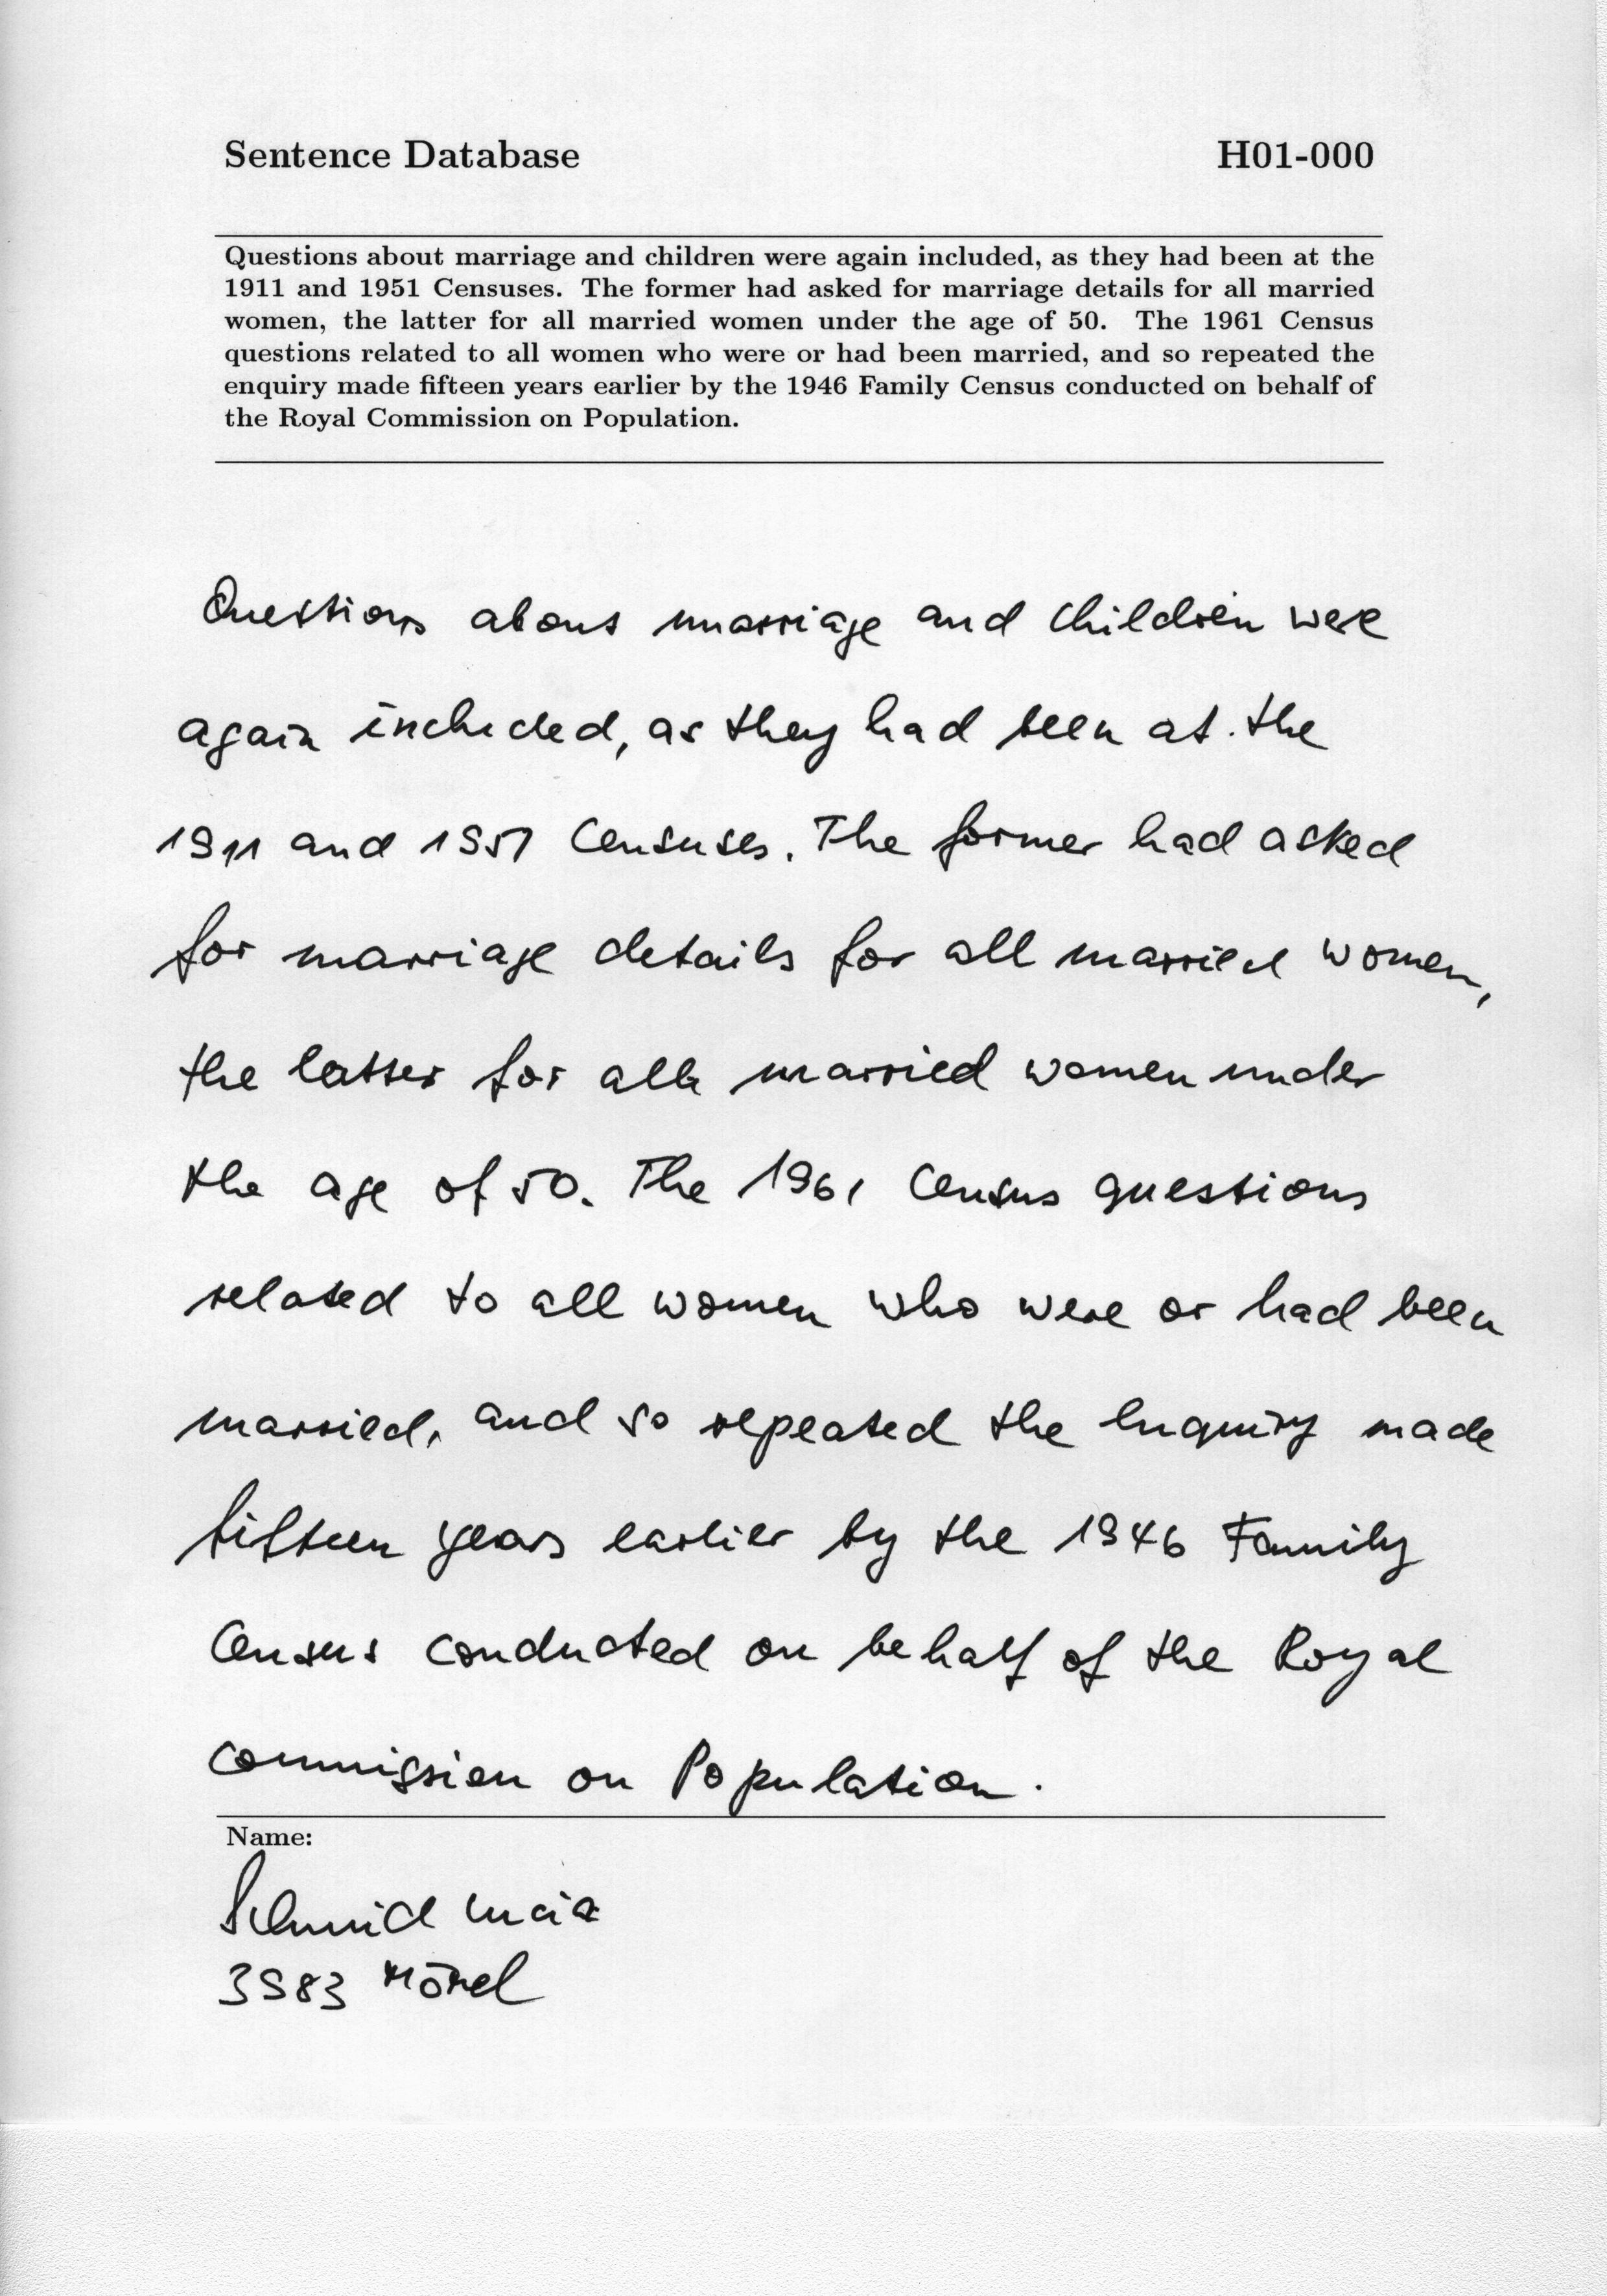 Sentence Database H01-000
Questions about marriage and children were again included, as they had been at the
1911 and 1951 Censuses. The former had asked for marriage details for all married
women, the latter for all married women under the age of 50. The 1961 Census
questions related to all women who were or had been married, and so repeated the
enquiry made fifteen years earlier by the 1946 Family Census conducted on behalf of
the Royal Commission on Population.
Questions about marriage and children were
again included, as they had been at the
1911 and 1951 Censuses. The former had asked
for marriage details for all married women,
the latter for all married women under
the age of 50. The 1961 Census questions
related to all women who were or had been
married, and so repeated the enquiry made
fifteen years earlier by the 1946 Family
Census conducted on behalf of the Royal
Commission on Population.
Name:
Schmid
3983 Mörel